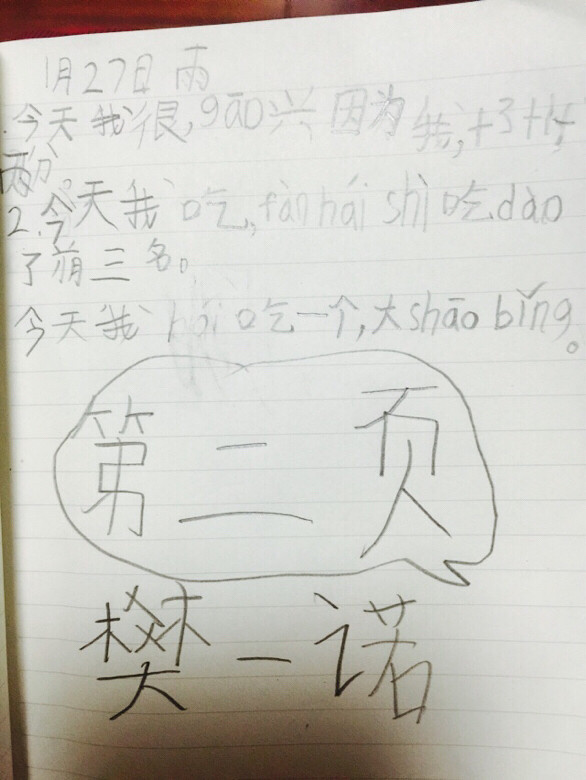 1月27日 雨
.今天我很,gāo兴因为我,+3+
两分。
2.今天我吃,fàn hái shì 吃dào
了前三名。
今天我hái吃一个,大shāo bǐng。
第二页
樊一诺